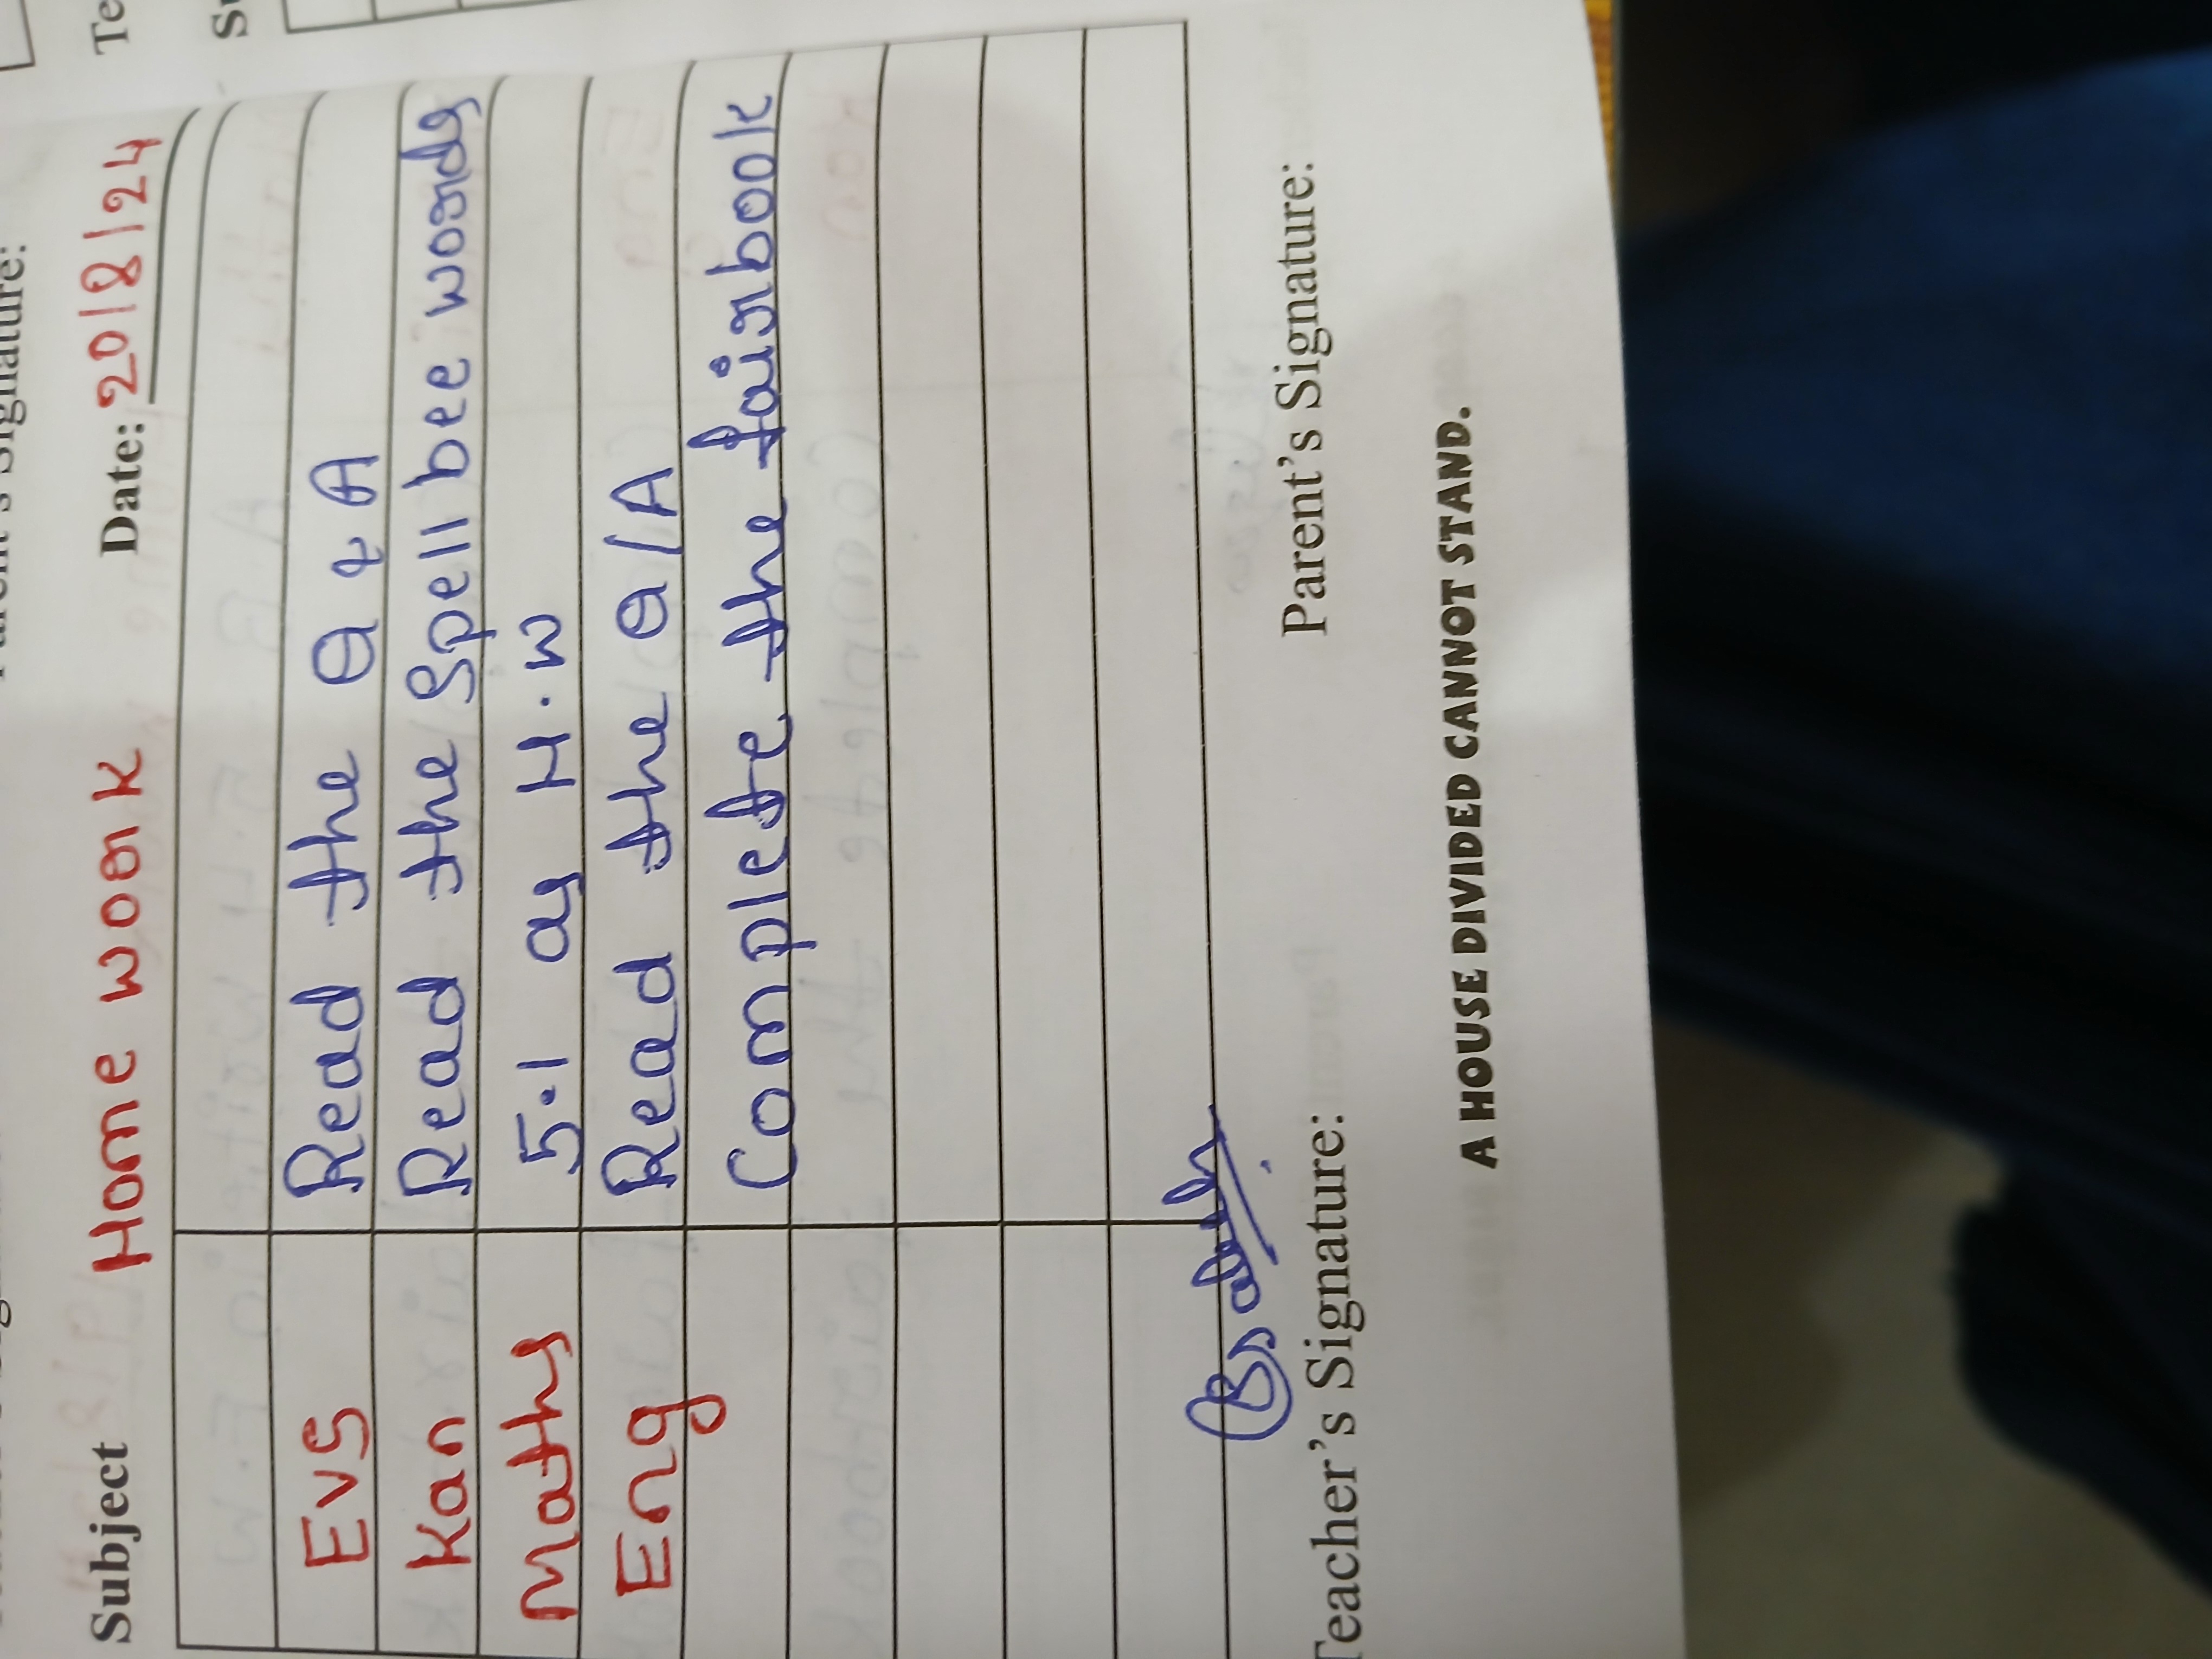 Subject Home work Date: 20/8/24
EVS Read the Q & A
Kan Read the Spell bee words
Maths 5.1 as H.W
Eng Read the Q/A
Complete the fairbook
Teacher's Signature: Parent's Signature:
A HOUSE DIVIDED CANNOT STAND.